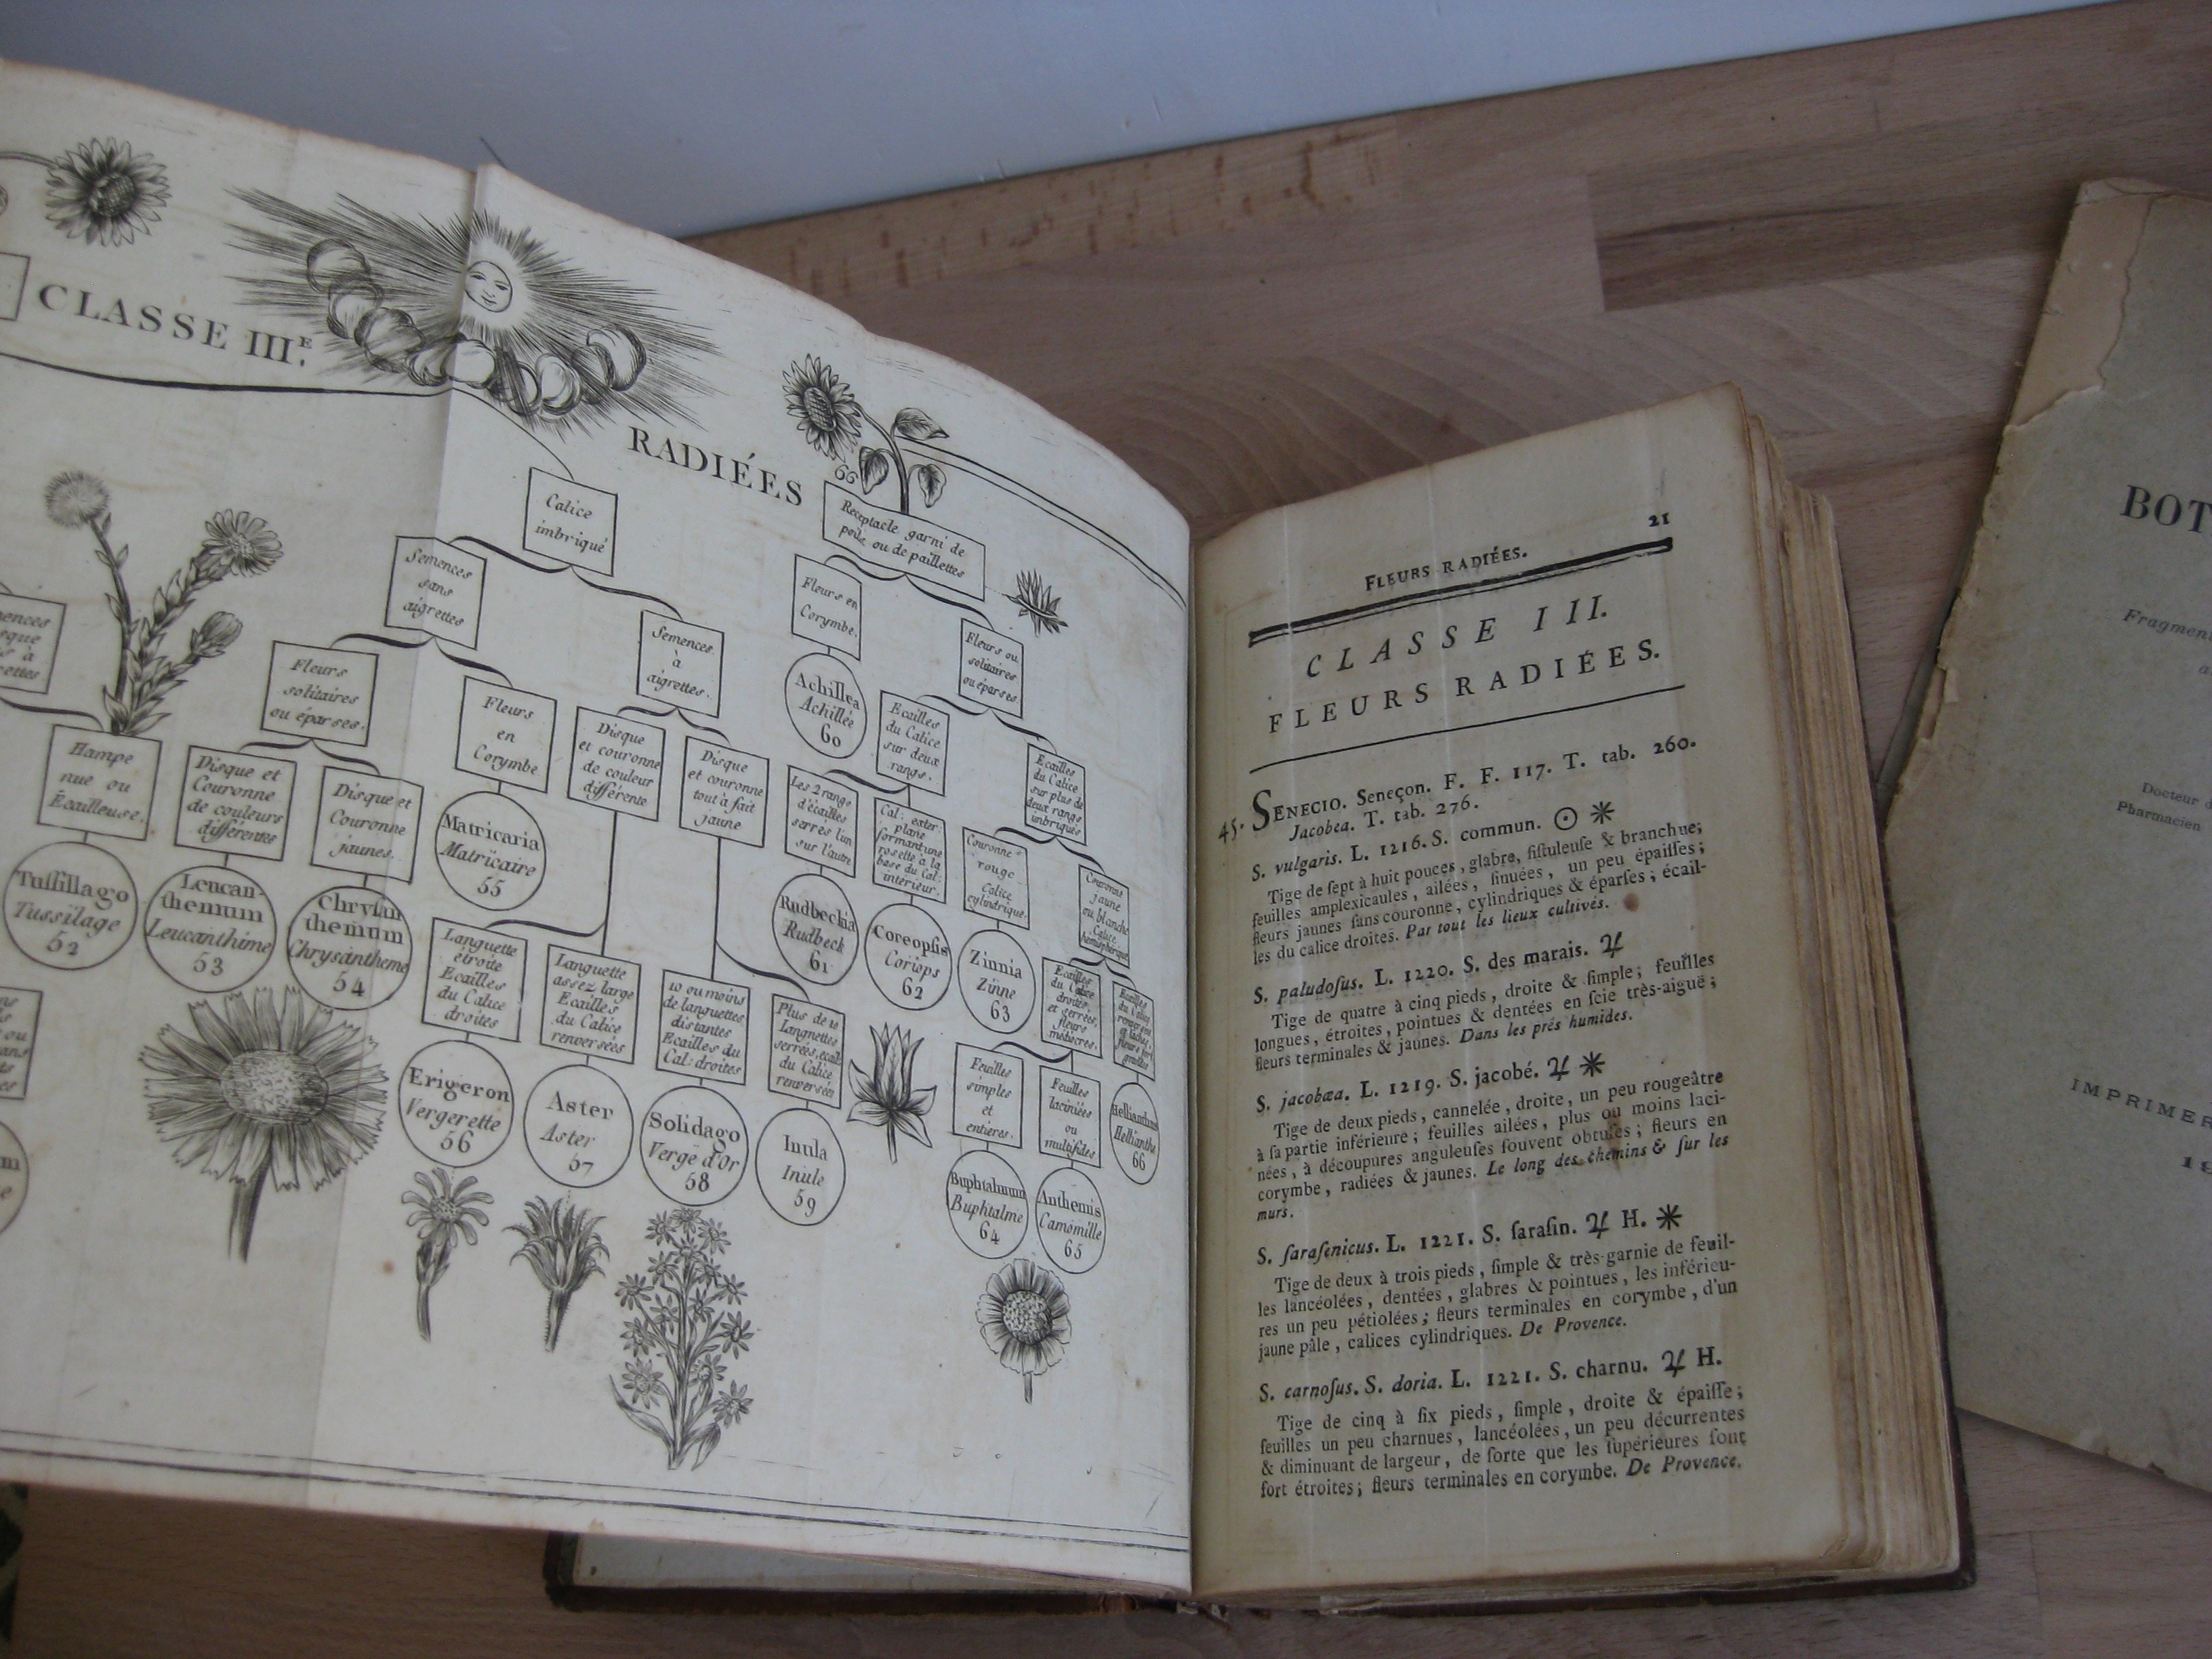 CLASSE III.E
RADIÉES
66
Calice
imbriqué
Receptacle garni de
poils ou de paillettes
Semences
sans
aigrettes
Semences
à
aigrettes.
Fleurs en
Corymbe.
Fleurs ou
solitaires
ou éparses
Fleurs
solitaires
ou éparses.
Fleurs
en
Corymbe
Hampe
nue ou
Écailleuse.
Disque et
Couronne
de couleurs
différentes
Disque et
Couronne
jaunes.
Disque
et couronne
de couleur
différente
Disque
et couronne
tout à fait
jaune
Ecailles
du Calice
sur deux
rangs.
Ecailles
du Calice
sur plus de
deux rangs
imbriqués
Les 2 rangs
d'écailles
serrés l'un
sur l'autre
Cal: exter:
plane
formant une
rosette a la
base du Cal:
intérieur.
Couronne
rouge
Calice
cylindrique.
Couronne
jaune
ou blanche
Calice
hémisphérique
Tussillago
Tussilage
52
Leucan-
themum
Leucanthème
53
Chrysan
themum
Chrysantheme
54
Matricaria
Matricaire
55
Achillea
Achillée
60
Rudbeckia
Rudbeck
61
Coreopsis
Coriops
62
Zinnia
Zinne
63
Languette
etroite
Ecailles
du Calice
droites
Languette
assez large
Ecailles
du Calice
renversées
10 ou moins
de languettes
distantes
Ecailles du
Cal: droites
Plus de 10
Languettes
serrées, écail:
du Calice
renversées
Ecailles
du Calice
droites
et serrées,
fleurs
médiocres.
Feuilles
simples
et
entieres.
Feuilles
laciniées
ou
multifides
Erigeron
Vergerette
56
Aster
Aster
57
Solidago
Verge d'Or
58
Inula
Inule
59
Buphtalmum
Buphtalme
64
Anthemis
Camomille
65
Hellianthus
Hellianthe
66
21
FLEURS RADIÉES.
CLASSE III.
FLEURS RADIÉES.
45. SENECIO. Seneçon. F. F. 117. T. tab. 260.
Jacobea. T. tab. 276.
S. vulgaris. L. 1216. S. commun. ☉ ✳
Tige de ſept à huit pouces, glabre, fiſtuleuſe & branchue;
feuilles amplexicaules, ailées, ſinuées, un peu épaiſſes;
fleurs jaunes ſans couronne, cylindriques & éparſes; écail-
les du calice droites. Par tout les lieux cultivés.
S. paludoſus. L. 1220. S. des marais. ♃
Tige de quatre à cinq pieds, droite & ſimple; feuilles
longues, étroites, pointues & dentées en ſcie très-aiguë;
fleurs terminales & jaunes. Dans les prés humides.
S. jacobæa. L. 1219. S. jacobé. ♃ ✳
Tige de deux pieds, cannelée, droite, un peu rougeâtre
à ſa partie inférieure; feuilles ailées, plus ou moins laci-
nées, à découpures anguleuſes ſouvent obtuſes; fleurs en
corymbe, radiées & jaunes. Le long des chemins & ſur les
murs.
S. ſaraſenicus. L. 1221. S. ſaraſin. ♃ H. ✳
Tige de deux à trois pieds, ſimple & très-garnie de feuil-
les lancéolées, dentées, glabres & pointues, les inférieu-
res un peu pétiolées; fleurs terminales en corymbe, d'un
jaune pâle, calices cylindriques. De Provence.
S. carnoſus. S. doria. L. 1221. S. charnu. ♃ H.
Tige de cinq à ſix pieds, ſimple, droite & épaiſſe;
feuilles un peu charnues, lancéolées, un peu décurrentes
& diminuant de largeur, de ſorte que les ſupérieures ſont
fort étroites; fleurs terminales en corymbe. De Provence.
BOT
Fragmen
Docteur
Pharmacien
IMPRIMER